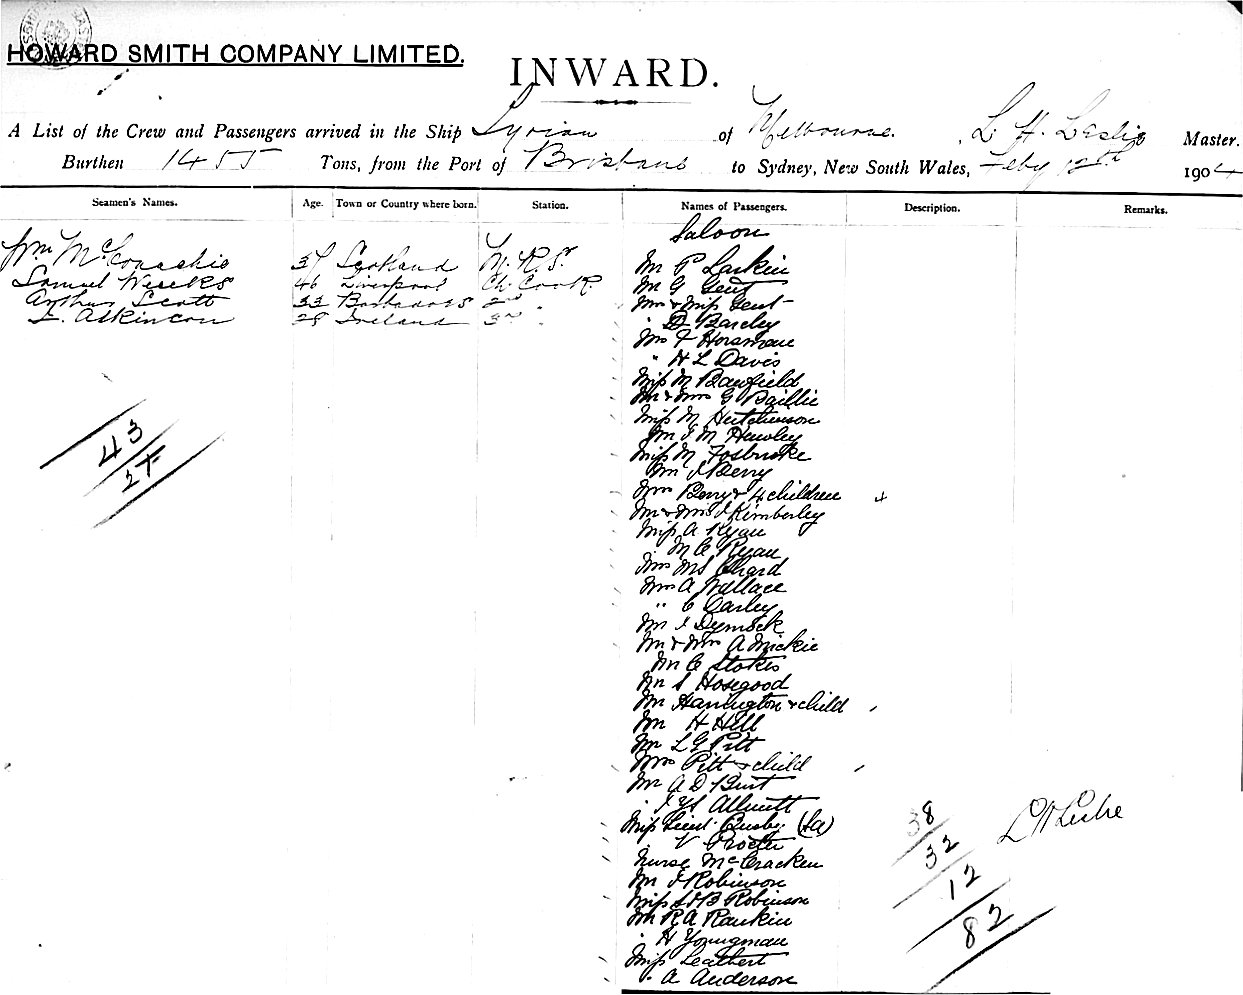 HOWARD SMITH COMPANY LIMITED.
INWARD.
A List of the Crew and Passengers arrived in the Ship Syrian of Melbourne. L. H. Leslie Master.
Burthen 1455 Tons, from the Port of Brisbane to Sydney, New South Wales, Feby 12th 1904
Seamen's Names. Age. Town or Country where born. Station. Names of Passengers. Description. Remarks.
Saloon
Wm McConachie 37 Scotland M. R. S.
Samuel Weeks 46 Liverpool Ch. Cook
Arthur Scott 33 Barbadoes 2nd "
J. Atkinson 28 Ireland 3rd "
Mr P Larkin
Mr G Gent
Mrs & Miss Gent
" D Barcley
Mrs F Horsman
" H L Davis
Miss M Bawfield
Mr & Mrs G Baillie
Miss M Hutchinson
Mr J M Hawley
Miss M Fosbroke
Mr J Berry
Mrs Berry & 4 children 4
Mr & Mrs J Kimberley
Miss A Ryan
" M C Ryan
Mrs Ms Chard
Mrs A Wallace
" C Darley
Mr J Dymock
Mr & Mrs A Mickie
Mr C Stokes
Mr S Hosegood
Mr Harrington & child
Mr H Hill
Mr L G Pitt
Mrs Pitt & child
Mr A D Burt
" Allnutt
Miss Lieut Busby (SA)
" V Procter
Nurse McCracken
Mr J Robinson
Miss L & B Robinson
Mr R A Rankin
" H Youngman
Miss Leathert
" A Anderson
43
27
38
32
12
82
L H Leslie